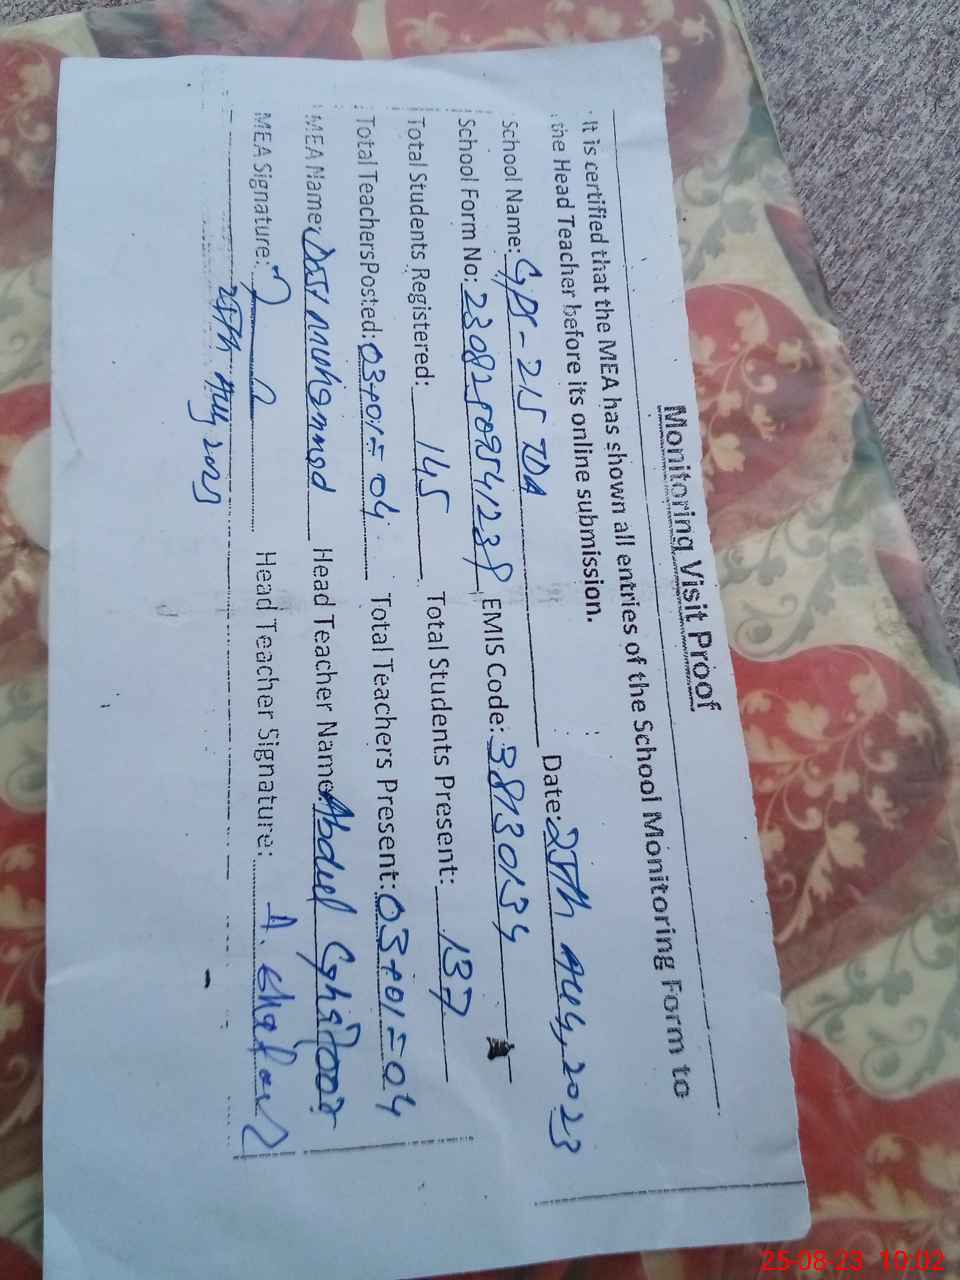 Monitoring Visit Proof
It is certified that the MEA has shown all entries of the School Monitoring Form to
the Head Teacher before its online submission.
School Name: GPS-215 TDA Date: 25th Aug, 2023
School Form No: EMIS Code: 38130134
Total Students Registered: 145 Total Students Present: 137
Total TeachersPosted: 03+01=04 Total Teachers Present: 03+01=04
MEA Name: Dost Muhammad Head Teacher Name Abdul Ghafoor
MEA Signature: Head Teacher Signature: A. Ghafoor
25th Aug 2023
25-08-23 10:02